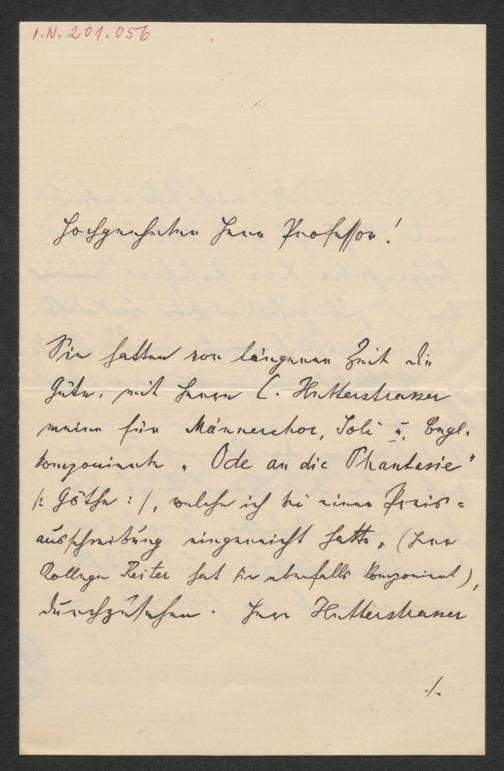 I.N. 201.056
Hochgeehrter Herr Professor!
Sie hatten vor längerer Zeit die
Güte, mit Herrn C. Hutterstrasser
meine für Männerchor, Soli u. Begl.
komponierte „Ode an die Phantasie"
/: Göthe :/, welche ich bei einer Preis=
ausschreibung eingereicht hatte, (Herr
Kollege Reiter hat sie ebenfalls komponiert),
durchzusehen. Herr Hutterstrasser
./.